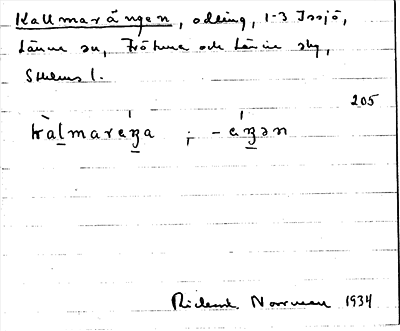 Kallmarängen, odling, 1-3 Issjö,
Länna sn, Frötuna och Länna skg,
Sthlms l.
205
kàlmaréŋa ; -éŋən
Rickard Norrman 1934